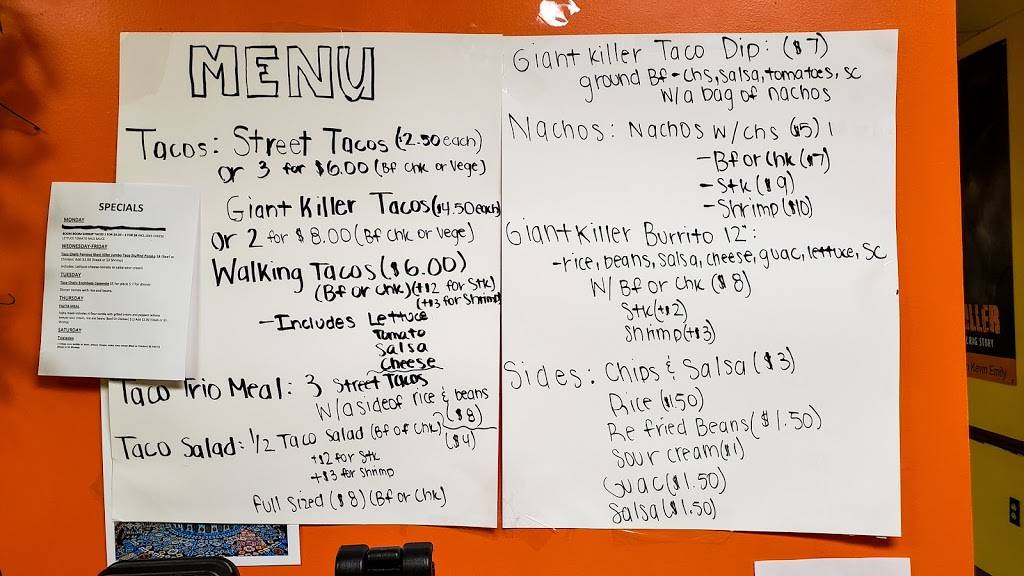 MENU
Tacos: Street Tacos ($2.50 each)
or 3 for $6.00 (Bf Chk or Vege)
Giant Killer Tacos ($4.50 each)
or 2 for $8.00 (Bf Chk or Vege)
Walking Tacos ($6.00)
(Bf or Chk) (+$2 for Stk)
(+$3 for Shrimp)
-Includes Lettuce
Tomato
Salsa
Cheese
Taco Trio Meal: 3 Street Tacos
W/a side of rice & beans
($8)
Taco Salad: 1/2 Taco Salad (Bf of Chk) ($4)
+$2 for Stk
+$3 for Shrimp
Full Sized ($8) (Bf or Chk)
Giant Killer Taco Dip: ($7)
ground Bf - chs, salsa, tomatoes, SC
W/a bag of nachos
Nachos: Nachos W/chs ($5)
-Bf or Chk ($7)
-Stk ($9)
-Shrimp ($10)
Giant Killer Burrito 12":
-rice, beans, salsa, cheese, guac, lettuce, SC
W/ Bf or Chk ($8)
Stk (+$2)
Shrimp (+$3)
Sides: Chips & Salsa ($3)
Rice ($1.50)
Refried Beans ($1.50)
Sour cream ($1)
Guac ($1.50)
Salsa ($1.50)
SPECIALS
MONDAY
LETTUCE TOMATO
WEDNESDAY-FRIDAY
TUESDAY
Dinner comes with rice and beans
THURSDAY
FAJITA MEAL
SATURDAY
LLER
STORY
Kevin Emily